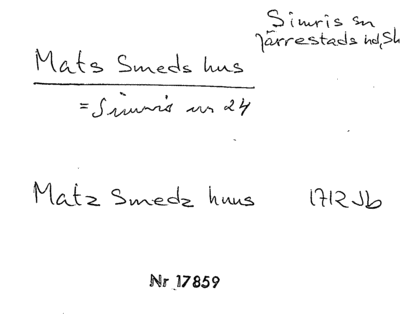 Simris sn
Järrestads hd, Sk
Mats Smeds hus
= Simris nr 24
Matz Smedz huus 1712 Jb
Nr 17859